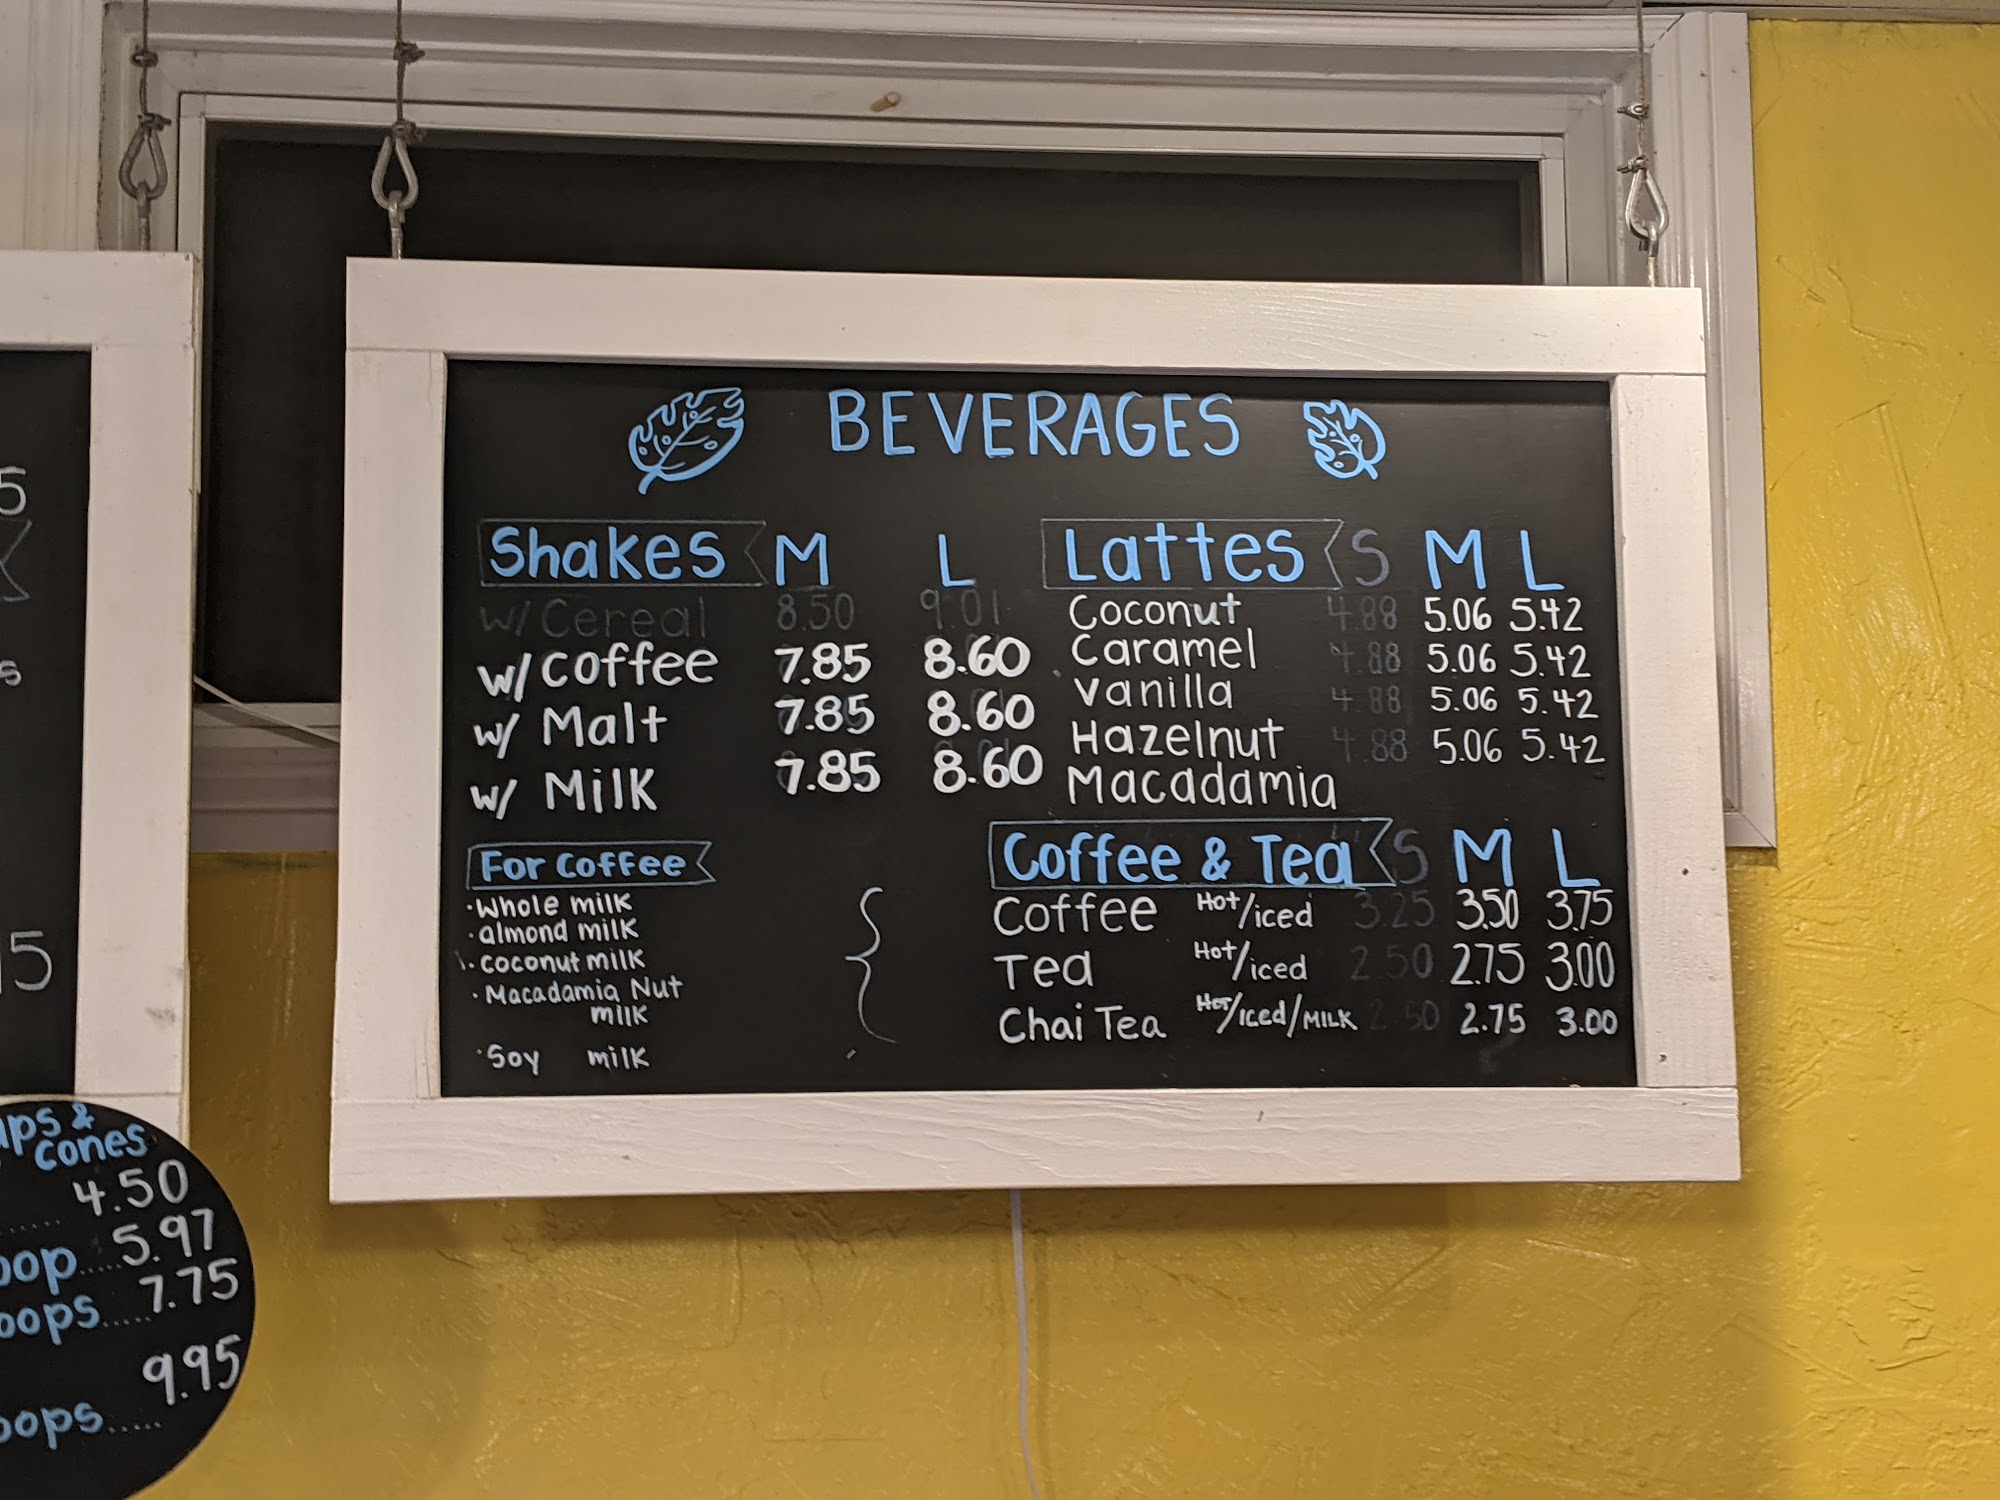 BEVERAGES
Shakes M L
w/ Cereal 8.50 9.01
w/ Coffee 7.85 8.60
w/ Malt 7.85 8.60
w/ Milk 7.85 8.60
For Coffee
·Whole milk
·almond milk
·coconut milk
·Macadamia Nut
milk
·Soy milk
Lattes S M L
Coconut 4.88 5.06 5.42
Caramel 4.88 5.06 5.42
Vanilla 4.88 5.06 5.42
Hazelnut 4.88 5.06 5.42
Macadamia
Coffee & Tea S M L
Coffee Hot/iced 3.25 3.50 3.75
Tea Hot/iced 2.50 2.75 3.00
Chai Tea Hot/iced/MILK 2.50 2.75 3.00
5
s
15
ups &
cones
4.50
oop.....5.97
oops.....7.75
9.95
oops.....